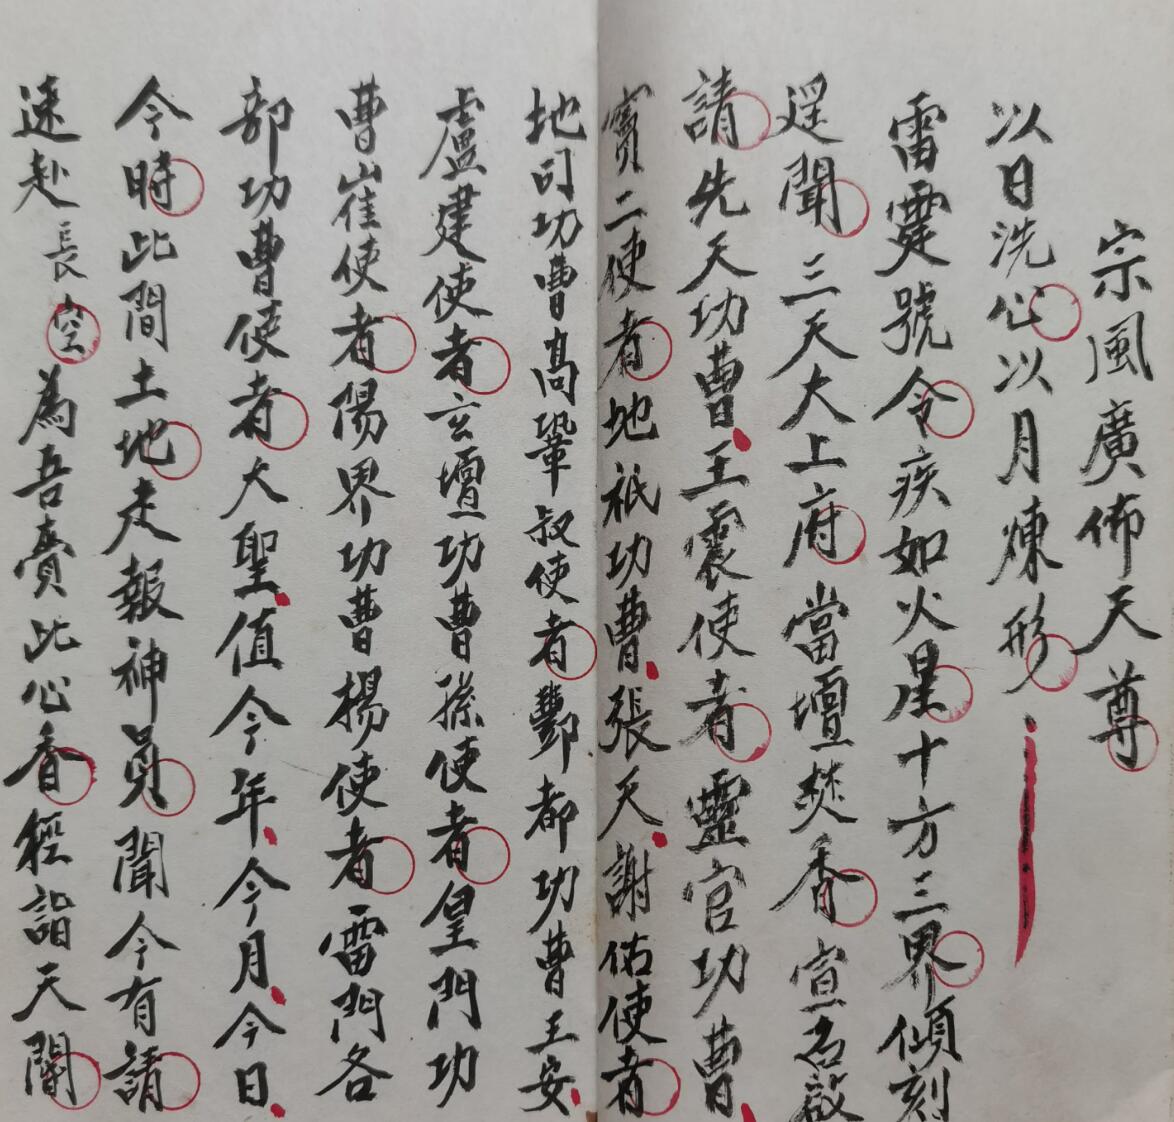 宗風廣佈天尊
以日洗心以月煉形
雷霆號令疾如火星十方三界傾刻
遥聞三天大上府當壇焚香宣名啟
請先天功曹王震使者靈官功曹
竇二使者地祇功曹張天謝佑使者
地司功曹髙鞏叔使者酆都功曹王安
盧建使者玄壇功曹孫使者皇門功
曹崔使者陽界功曹楊使者雷門各
部功曹使者大聖值今年今月今日
今時此間土地走報神員聞今有請
速赴長空為吾賫此心香經詣天闕